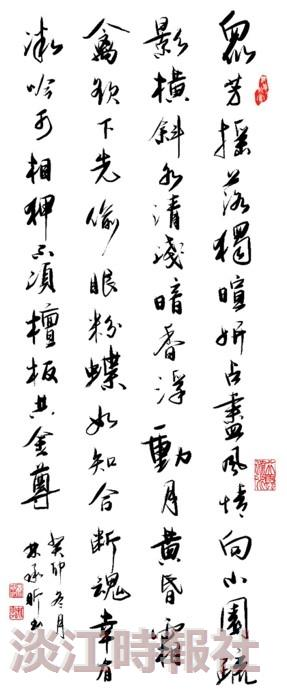 眾芳搖落獨暄妍占盡風情向小園疏
影橫斜水清淺暗香浮動月黃昏霜
禽欲下先偷眼粉蝶如知合斷魂幸有
微吟可相狎不須檀板共金尊
癸卯冬月
林
淡江時報社